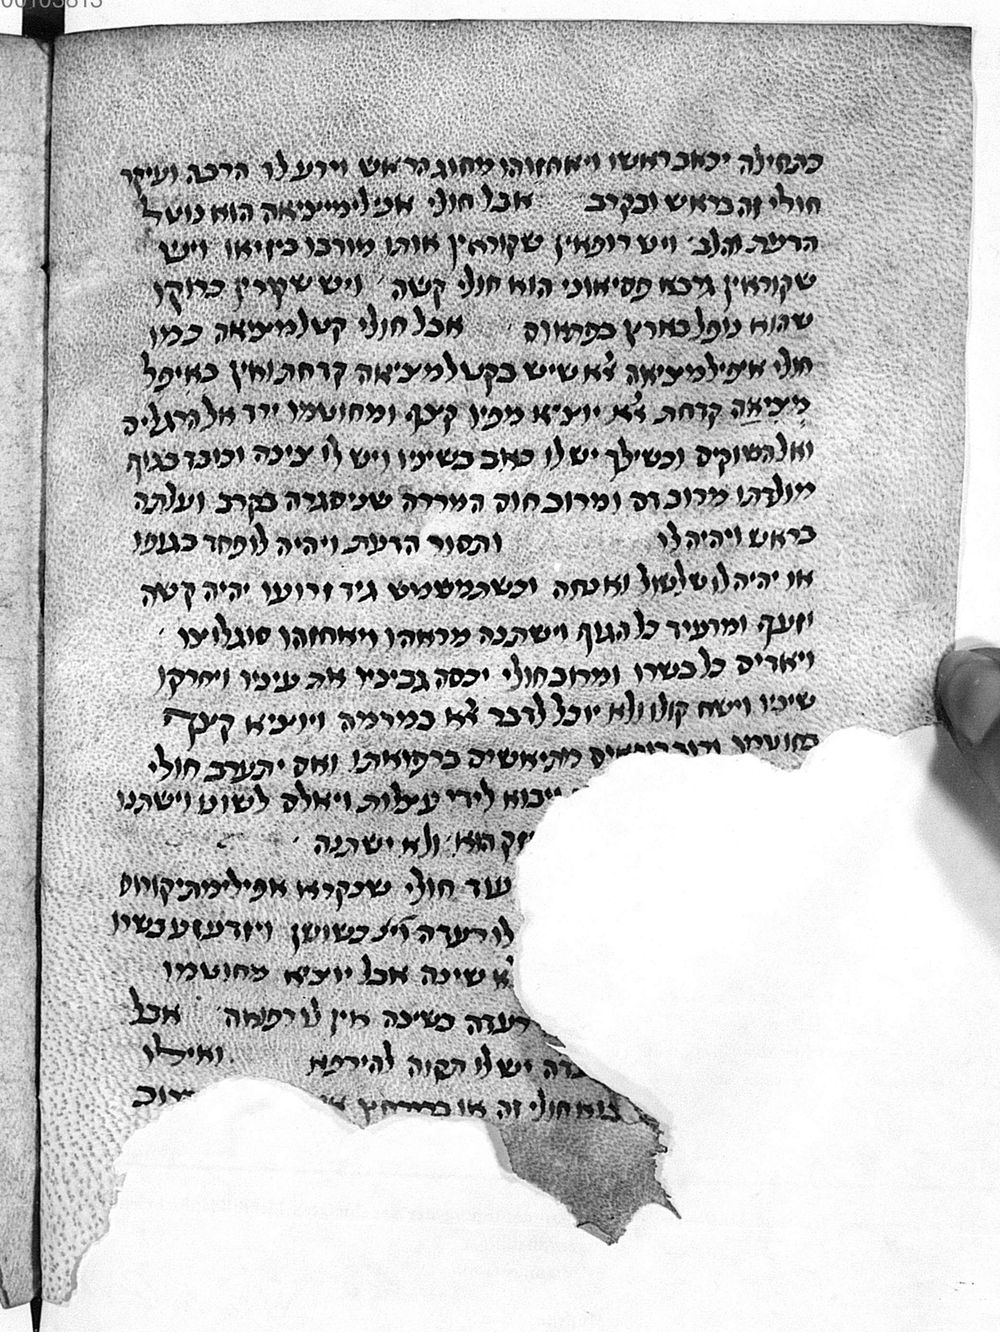 00103813
כתחילה יכאב ראשו ויאחזוהו מחוג הראש וירע לו הרבה ועיקר
חולי זה בראש ובקרב אבל חולי אפילמיציאה הוא נוטל
הדעת והלב ויש רופאין שקוראין אותו מורבו כיזיאו ויש
שקוראין גרבא פסיאוני הוא חולי קשה ויש שקורין ברוקו
שהוא נופל בארץ בפתאום אבל חולי קטלמציאה כמו
חולי אפילמציאה אלא שיש בקטלמציאה קדחת ואין באיפל
מציאה קדחת אלא יוציא מפיו קצף ומחוטמו ירד אל הרגלים
ואל השוקים וכשילך יש לו כאב בשיניו ויש לו צינה וכובד בגוף
מולדתו מרוב דם ומרוב חום המררה שניסגרה בקרב ועלתה
בראש ויהיה לו ותסור הדעת ויהיה לו פחד בגופו
או יהיה לו שלשול ואנחה וכשתמשמש גיד זרועו יהיה קשה
וזעף ומרעיד כל הגוף וישתנה מראהו ויאחזהו סוגלוצו
ויאדים כל בשרו ומרוב חולי יכסה גביניו את עיניו ויחרקו
שיניו וישח קולו ולא יוכל לדבר אלא במרמה ויוציא קצף
בחוטמו מתיאשים ברפואתו ואם יתערב חולי
ויבוא לידי עילות ויאלם לשונו וישתנו
הוא ולא ישתנה
עוד חולי שנקרא אפילימתיקורוס
לו רעדה כשושן ויזדעזע בשרו
שינה אבל יוציא מחוטמו
רעדה בשינה אין לו רפואה אבל
יש לו תקוה להירפא ואילו
בוא חולי זה או